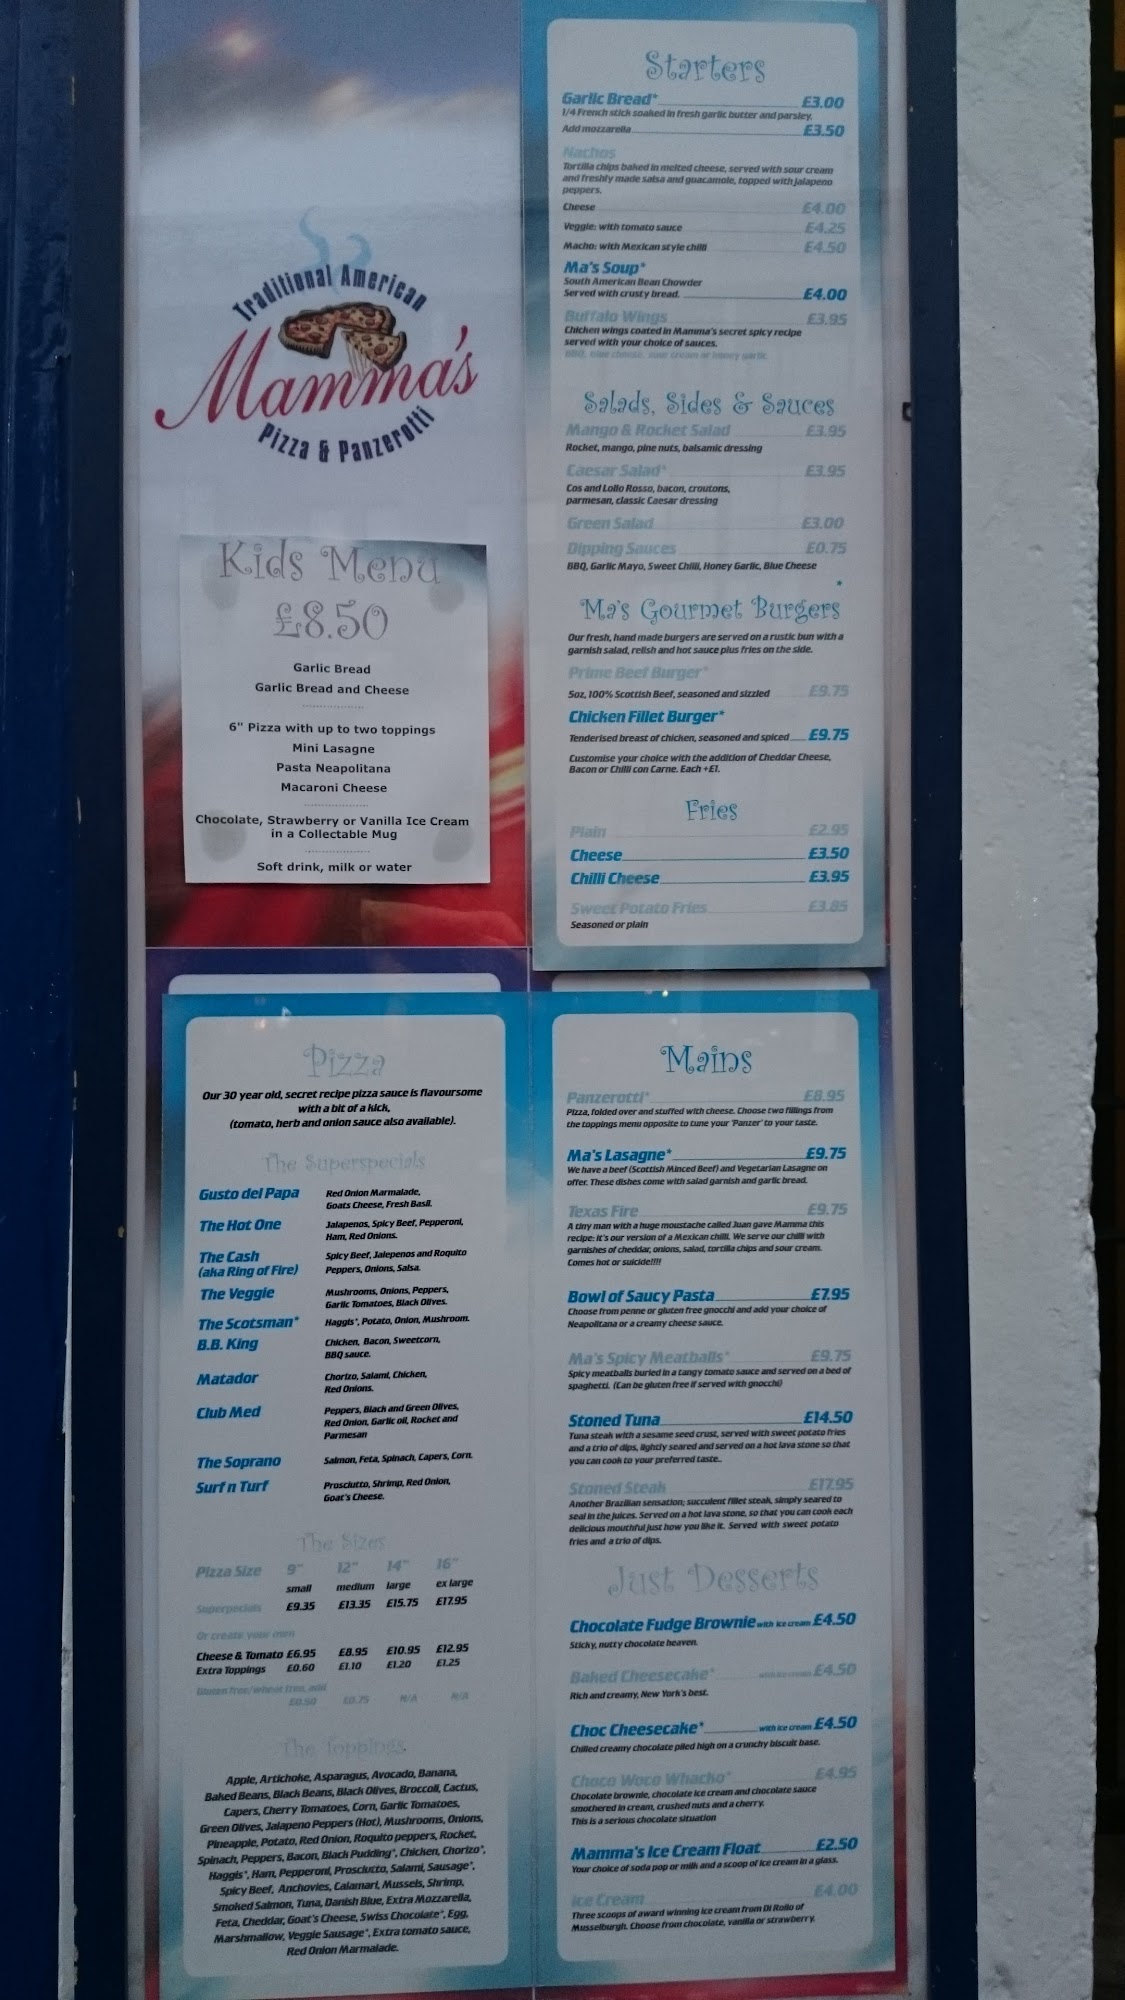 Traditional American
Mamma's
Pizza & Panzerotti
Kids Menu
£8.50
Garlic Bread
Garlic Bread and Cheese
6" Pizza with up to two toppings
Mini Lasagne
Pasta Neapolitana
Macaroni Cheese
Chocolate, Strawberry or Vanilla Ice Cream
in a Collectable Mug
Soft drink, milk or water
Starters
Garlic Bread* £3.00
1/4 French stick soaked in fresh garlic butter and parsley.
Add mozzarella £3.50
Nachos
Tortilla chips baked in melted cheese, served with sour cream
and freshly made salsa and guacamole, topped with jalapeno
peppers.
Cheese £4.00
Veggie: with tomato sauce £4.25
Macho: with Mexican style chilli £4.50
Ma's Soup*
South American Bean Chowder
Served with crusty bread. £4.00
Buffalo Wings £3.95
Chicken wings coated in Mamma's secret spicy recipe
served with your choice of sauces.
BBQ, blue cheese, sour cream or honey garlic
Salads, Sides & Sauces
Mango & Rocket Salad £3.95
Rocket, mango, pine nuts, balsamic dressing
Caesar Salad* £3.95
Cos and Lollo Rosso, bacon, croutons,
parmesan, classic Caesar dressing
Green Salad £3.00
Dipping Sauces £0.75
BBQ, Garlic Mayo, Sweet Chilli, Honey Garlic, Blue Cheese
Ma's Gourmet Burgers
Our fresh, hand made burgers are served on a rustic bun with a
garnish salad, relish and hot sauce plus fries on the side.
Prime Beef Burger*
5oz, 100% Scottish Beef, seasoned and sizzled £9.75
Chicken Fillet Burger*
Tenderised breast of chicken, seasoned and spiced £9.75
Customise your choice with the addition of Cheddar Cheese,
Bacon or Chilli con Carne. Each +£1.
Fries
Plain £2.95
Cheese £3.50
Chilli Cheese £3.95
Sweet Potato Fries £3.85
Seasoned or plain
Pizza
Our 30 year old, secret recipe pizza sauce is flavoursome
with a bit of a kick,
(tomato, herb and onion sauce also available).
The Superspecials
Gusto del Papa Red Onion Marmalade,
Goats Cheese, Fresh Basil.
The Hot One Jalapenos, Spicy Beef, Pepperoni,
Ham, Red Onions.
The Cash Spicy Beef, Jalepenos and Roquito
(aka Ring of Fire) Peppers, Onions, Salsa.
The Veggie Mushrooms, Onions, Peppers,
Garlic Tomatoes, Black Olives.
The Scotsman* Haggis*, Potato, Onion, Mushroom.
B.B. King Chicken, Bacon, Sweetcorn,
BBQ sauce.
Matador Chorizo, Salami, Chicken,
Red Onions.
Club Med Peppers, Black and Green Olives,
Red Onion, Garlic oil, Rocket and
Parmesan
The Soprano Salmon, Feta, Spinach, Capers, Corn.
Surf n Turf Prosciutto, Shrimp, Red Onion,
Goat's Cheese.
The Sizes
Pizza Size 9" 12" 14" 16"
small medium large ex large
Superpecials £9.35 £13.35 £15.75 £17.95
Or create your own
Cheese & Tomato £6.95 £8.95 £10.95 £12.95
Extra Toppings £0.60 £1.10 £1.20 £1.25
Gluten free/wheat free, add
£0.50 £0.75 N/A N/A
The Toppings
Apple, Artichoke, Asparagus, Avocado, Banana,
Baked Beans, Black Beans, Black Olives, Broccoli, Cactus,
Capers, Cherry Tomatoes, Corn, Garlic Tomatoes,
Green Olives, Jalapeno Peppers (Hot), Mushrooms, Onions,
Pineapple, Potato, Red Onion, Roquito peppers, Rocket,
Spinach, Peppers, Bacon, Black Pudding*, Chicken, Chorizo*,
Haggis*, Ham, Pepperoni, Prosciutto, Salami, Sausage*,
Spicy Beef, Anchovies, Calamari, Mussels, Shrimp,
Smoked Salmon, Tuna, Danish Blue, Extra Mozzarella,
Feta, Cheddar, Goat's Cheese, Swiss Chocolate*, Egg,
Marshmallow, Veggie Sausage*, Extra tomato sauce,
Red Onion Marmalade.
Mains
Panzerotti* £8.95
Pizza, folded over and stuffed with cheese. Choose two fillings from
the toppings menu opposite to tune your 'Panzer' to your taste.
Ma's Lasagne* £9.75
We have a beef (Scottish Minced Beef) and Vegetarian Lasagne on
offer. These dishes come with salad garnish and garlic bread.
Texas Fire £9.75
A tiny man with a huge moustache called Juan gave Mamma this
recipe: it's our version of a Mexican chilli. We serve our chilli with
garnishes of cheddar, onions, salad, tortilla chips and sour cream.
Comes hot or suicide!!!!
Bowl of Saucy Pasta £7.95
Choose from penne or gluten free gnocchi and add your choice of
Neapolitana or a creamy cheese sauce.
Ma's Spicy Meatballs* £9.75
Spicy meatballs buried in a tangy tomato sauce and served on a bed of
spaghetti. (Can be gluten free if served with gnocchi)
Stoned Tuna £14.50
Tuna steak with a sesame seed crust, served with sweet potato fries
and a trio of dips, lightly seared and served on a hot lava stone so that
you can cook to your preferred taste..
Stoned Steak £17.95
Another Brazilian sensation; succulent fillet steak, simply seared to
seal in the juices. Served on a hot lava stone, so that you can cook each
delicious mouthful just how you like it. Served with sweet potato
fries and a trio of dips.
Just Desserts
Chocolate Fudge Brownie with ice cream £4.50
Sticky, nutty chocolate heaven.
Baked Cheesecake* with ice cream £4.50
Rich and creamy, New York's best.
Choc Cheesecake* with ice cream £4.50
Chilled creamy chocolate piled high on a crunchy biscuit base.
Choco Woco Whacko* £4.95
Chocolate brownie, chocolate ice cream and chocolate sauce
smothered in cream, crushed nuts and a cherry.
This is a serious chocolate situation
Mamma's Ice Cream Float £2.50
Your choice of soda pop or milk and a scoop of ice cream in a glass.
Ice Cream £4.00
Three scoops of award winning ice cream from Di Rollo of
Musselburgh. Choose from chocolate, vanilla or strawberry.